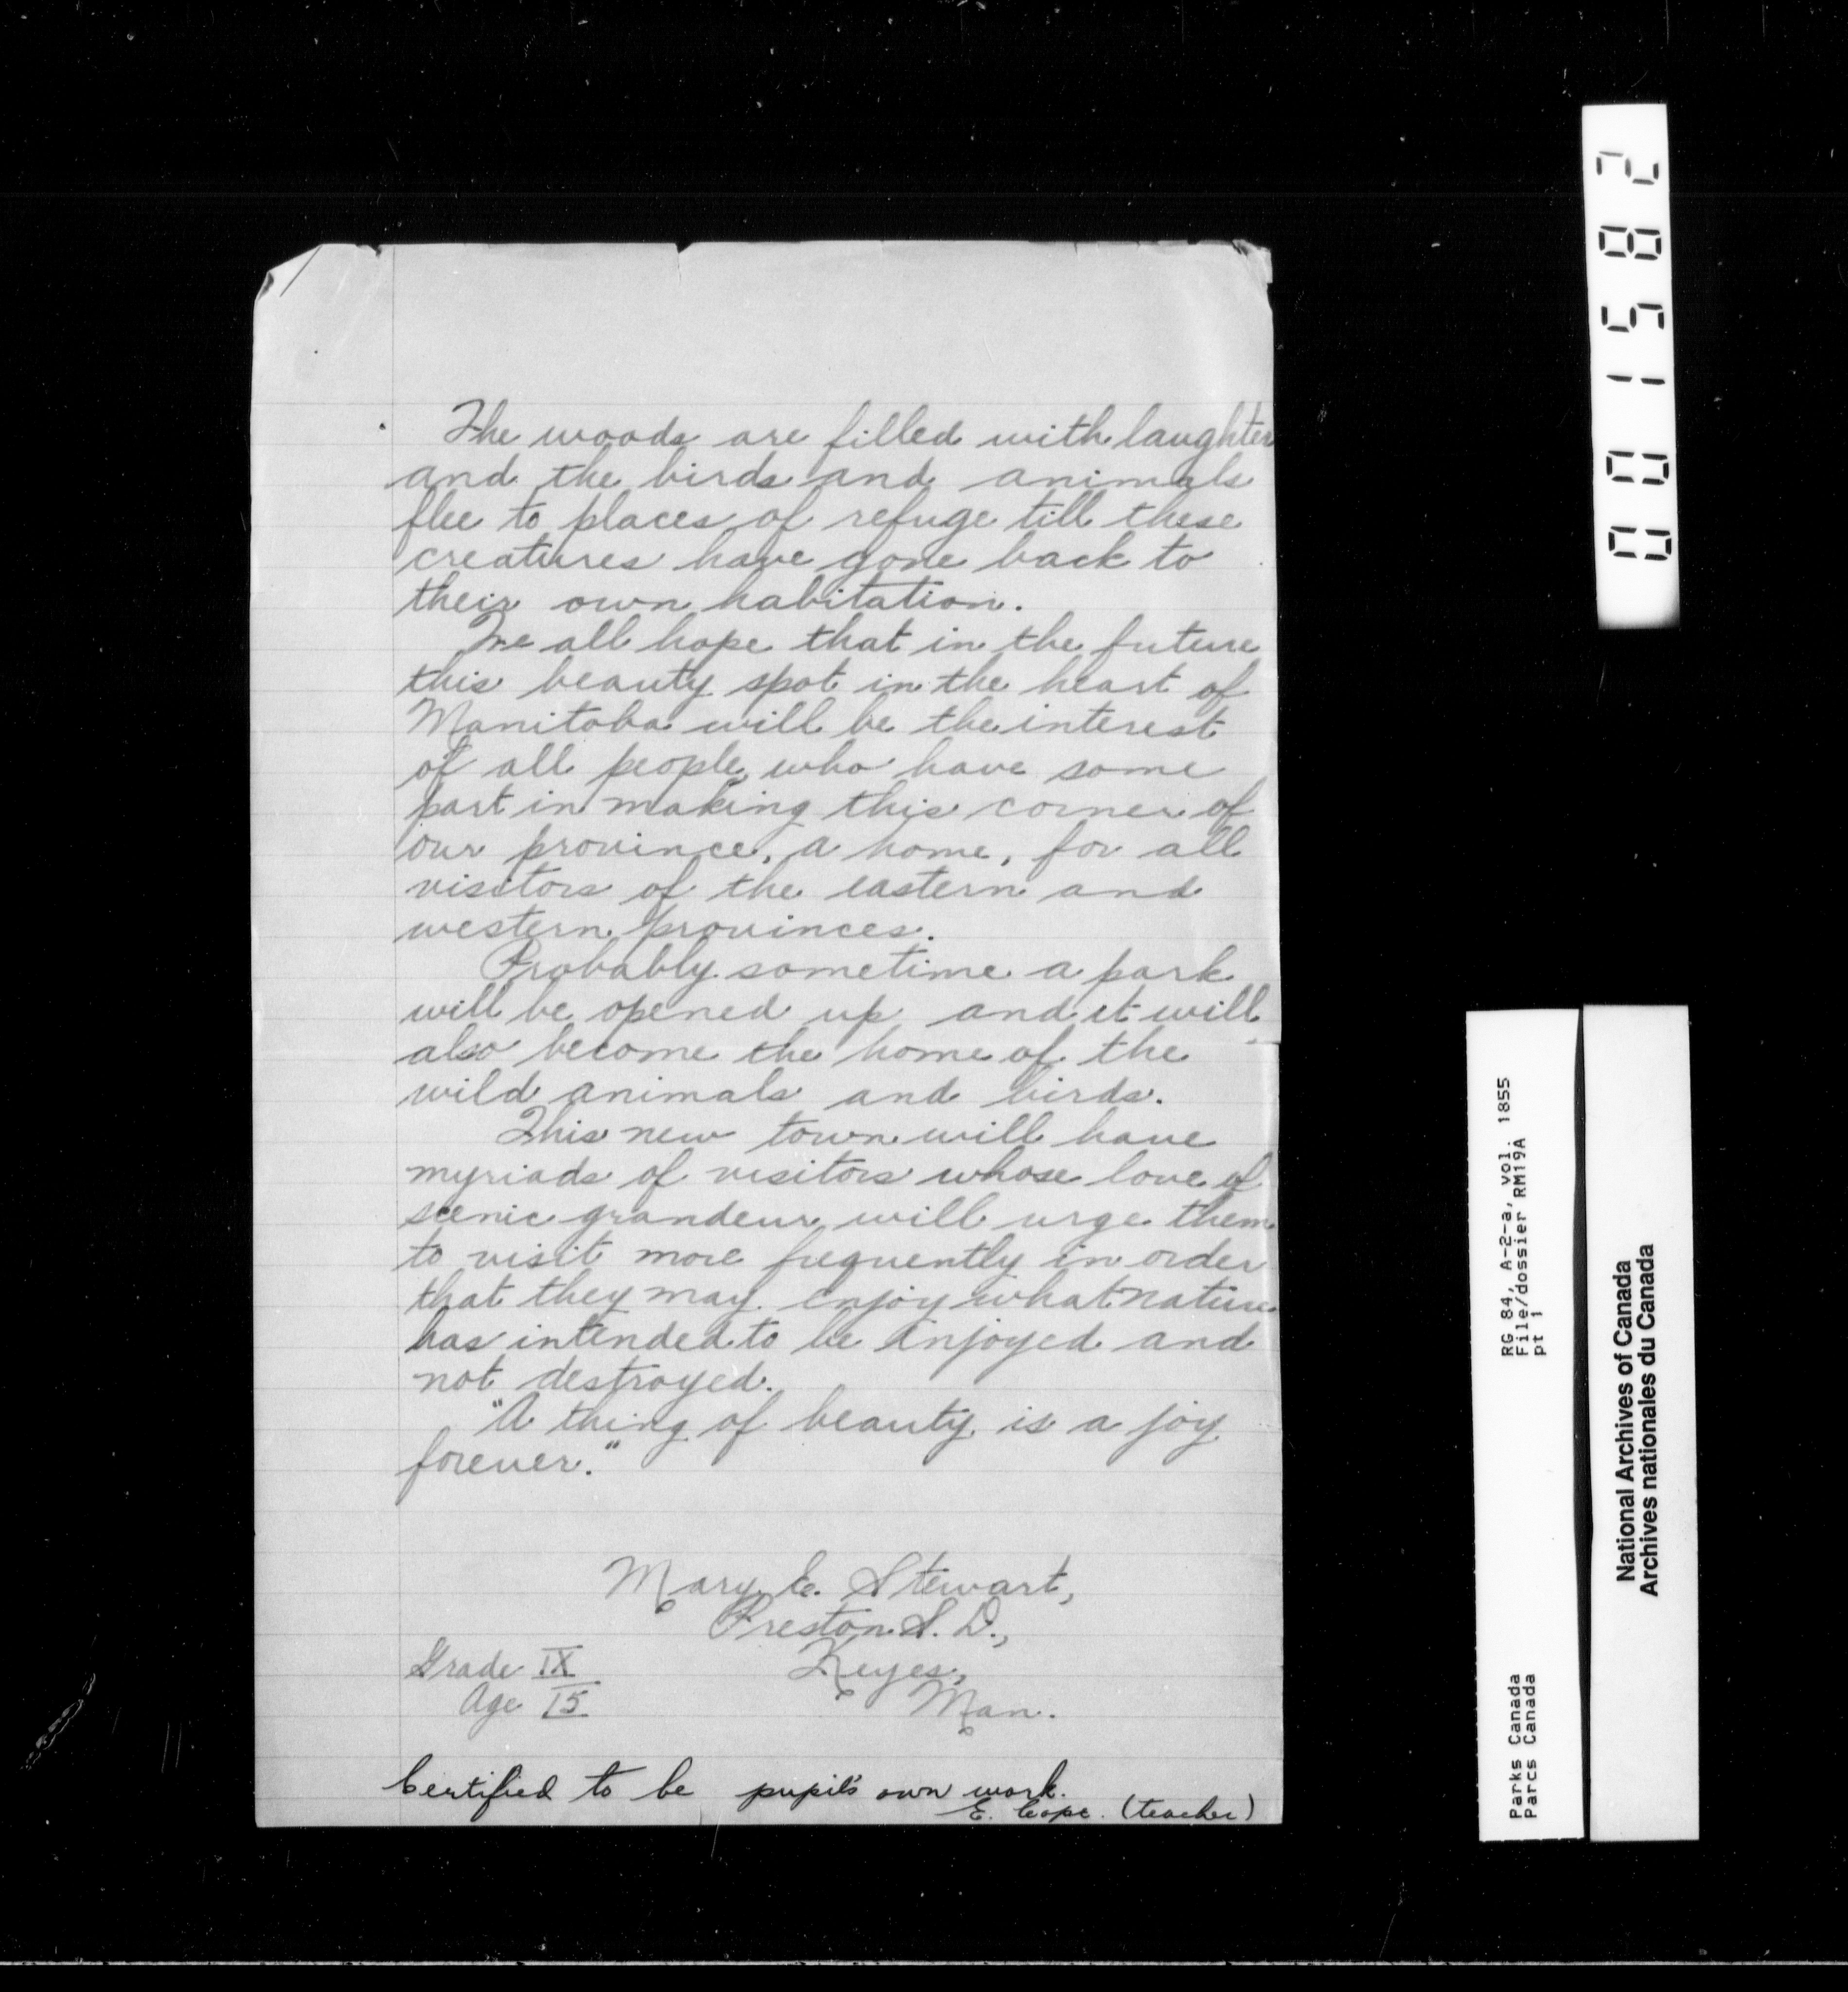 The woods are filled with laughter
and the birds and animals
flee to places of refuge till these
creatures have gone back to
their own habitation.
We all hope that in the future
this beauty spot in the heart of
Manitoba will be the interest
of all people who have some
part in making this corner of
our province, a home, for all
visitors of the eastern and
western provinces.
Probably sometime a park
will be opened up and it will
also become the home of the
wild animals and birds.
This new town will have
myriads of visitors whose love of
scenic grandeur will urge them
to visit more frequently in order
that they may enjoy what nature
has intended to be enjoyed and
not destroyed.
"A thing of beauty is a joy
forever."
Mary E. Stewart,
Preston S. D.,
Grade IX Keyes,
Age 15 Man.
Certified to be pupil's own work.
E. Cope. (teacher)
001582
RG 84, A-2-a, vol. 1855
File/dossier RM19A
pt 1
Parks Canada
Parcs Canada
National Archives of Canada
Archives nationales du Canada